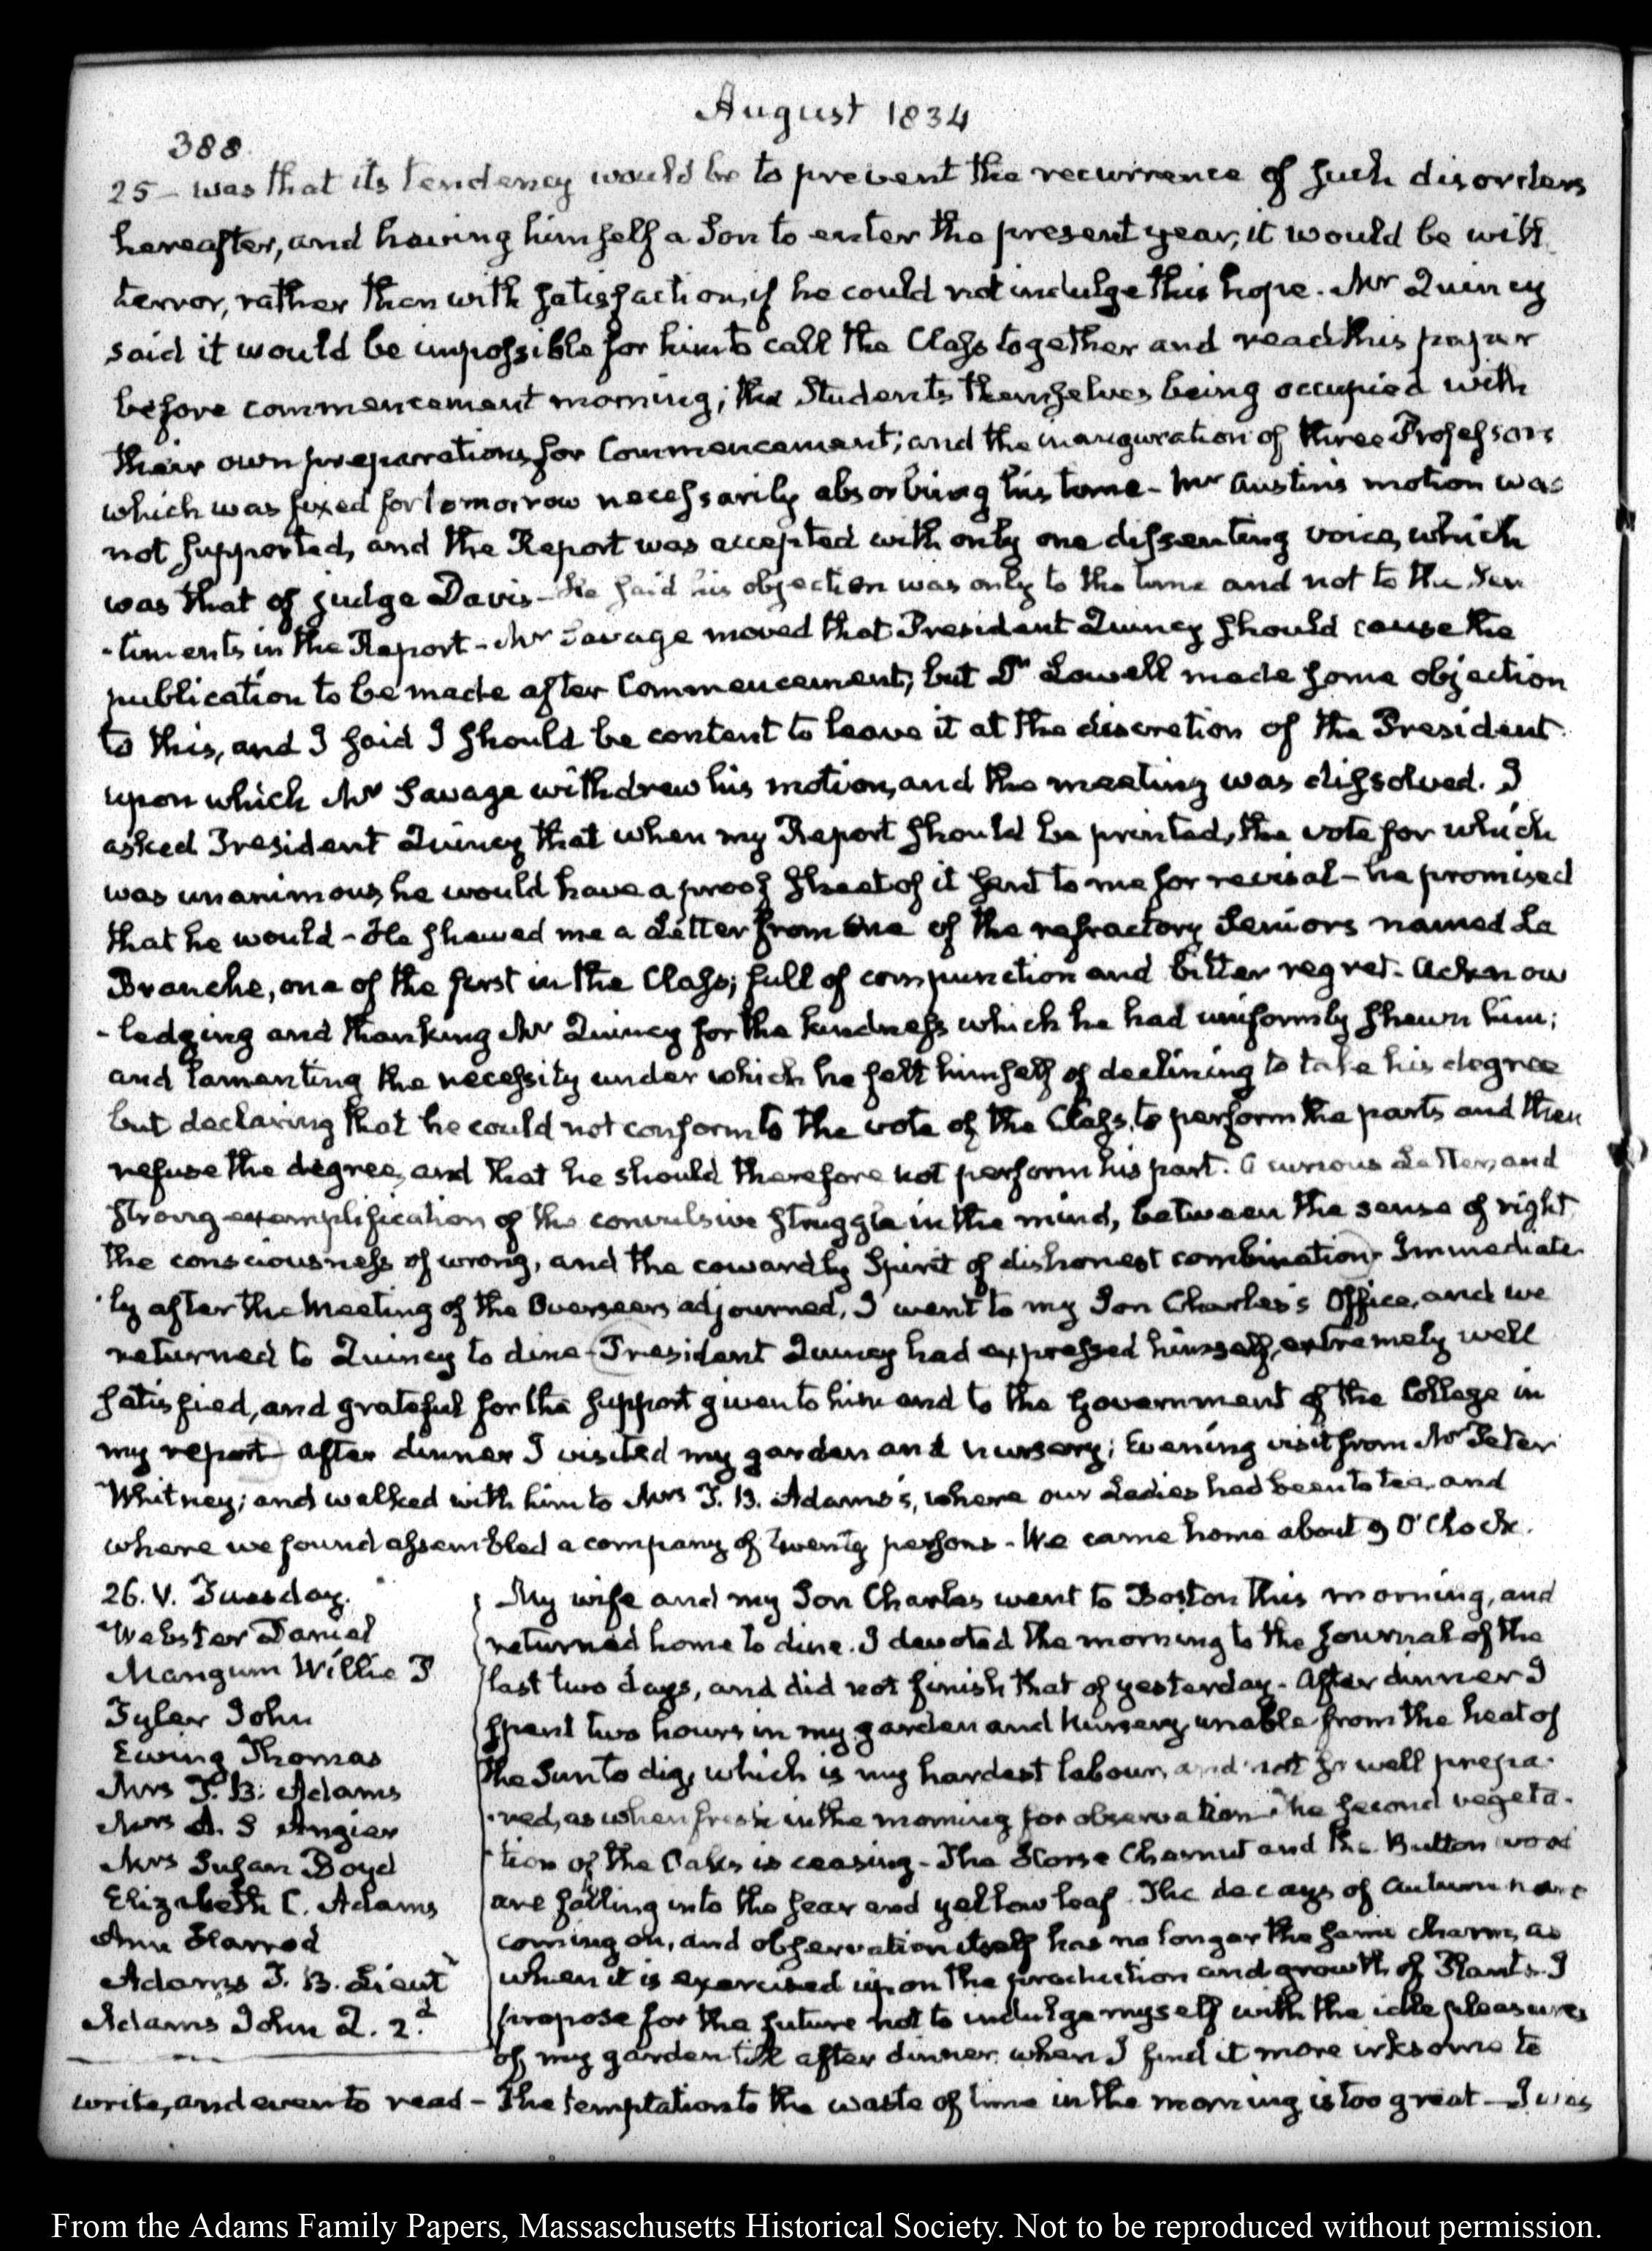 August 1834
388
25 – was that its tendency would be to prevent the recurrence of such disorders
hereafter, and having himself a Son to enter the present year, it would be with
terror, rather than with satisfaction, if he could not indulge this hope. Mr Quincy
said it would be impossible for him to call the Class together and read this paper
before commencement morning; the Students themselves being occupied with
their own preparations for Commencement; and the inauguration of three Professors
which was fixed for tomorrow necessarily absorbing his time – Mr Austin's motion was
not supported, and the Report was accepted with only one dissenting voice, which
was that of judge Davis – He said his objection was only to the time and not to the Sen
-timents in the Report – Mr Savage moved that President Quincy should cause the
publication to be made after Commencement; but Dr Lowell made some objection
to this, and I said I should be content to leave it at the discretion of the President
upon which Mr Savage withdrew his motion, and the meeting was dissolved. I
asked President Quincy that when my Report should be printed, the vote for which
was unanimous, he would have a proof sheet of it sent to me for revisal – he promised
that he would – He shewed me a Letter from one of the refractory Seniors named La
Branche, one of the first in the Class; full of compunction and bitter regret. Acknow
-ledging and thanking Mr Quincy for the kindness which he had uniformly shewn him;
and lamenting the necessity under which he felt himself of declining to take his degree
but declaring that he could not conform to the vote of the Class, to perform the parts and then
refuse the degree, and that he should therefore not perform his part. A curious Letter, and
strong exemplification of the convulsive struggle in the mind, between the sense of right
the consciousness of wrong, and the cowardly Spirit of dishonest combination. Immediate
-ly after the Meeting of the Overseers adjourned, I went to my Son Charles's Office, and we
returned to Quincy to dine – President Quincy had expressed himself, extremely well
satisfied, and grateful for the support given to him and to the Government of the College in
my report – after dinner I visited my garden and nursery; Evening visit from Mr Peter
Whitney; and walked with him to Mrs T. B. Adams's, where our Ladies had been to tea, and
where we found assembled a company of twenty persons – We came home about 9 O'Clock.
26. V. Tuesday.
Webster Daniel
Mangum Willie P
Tyler John
Ewing Thomas
Mrs T. B. Adams
Mrs A. S Angier
Mrs Susan Boyd
Elizabeth C. Adams
Ann Harrod
Adams T. B. Lieut
Adams John Q. 2.d
My wife and my Son Charles went to Boston this morning, and
returned home to dine. I devoted the morning to the journal of the
last two days, and did not finish that of yesterday – After dinner I
spent two hours in my garden and Nursery, unable from the heat of
the Sun to dig, which is my hardest labour, and not so well prepa-
-red, as when fresh in the morning for observation – The second vegeta-
-tion of the Oaks is ceasing – The Horse Chesnut and the Button wood
are falling into the sear and yellow leaf. The decays of autumn are
coming on, and observation itself has no longer the same charm, as
when it is exercised upon the production and growth of Plants. I
propose for the future not to indulge myself with the idle pleasures
of my garden till after dinner when I find it more irksome to
write, and even to read – The temptation to the waste of time in the morning is too great – I was
From the Adams Family Papers, Massaschusetts Historical Society. Not to be reproduced without permission.